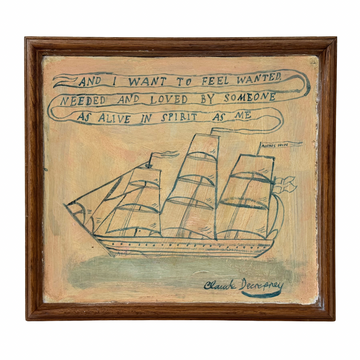 AND I WANT TO FEEL WANTED
NEEDED AND LOVED BY SOMEONE
AS ALIVE IN SPIRIT AS ME